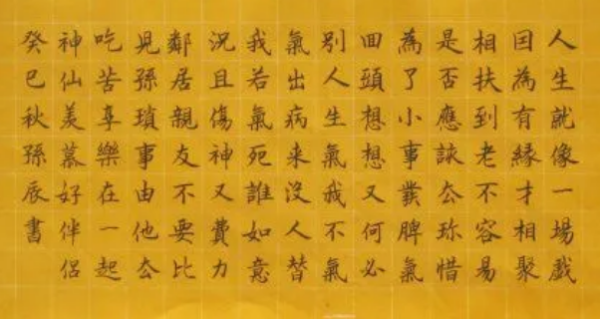 人生就像一場戲
因為有緣才相聚
相扶到老不容易
是否應該去珎惜
為了小事發脾氣
回頭想想又何必
別人生氣我不氣
氣出病來沒人替
我若氣死誰如意
況且傷神又費力
鄰居親友不要比
見孫瑣事由他去
吃苦享樂在一起
神仙羡慕好伴侶
癸巳秋孫辰書